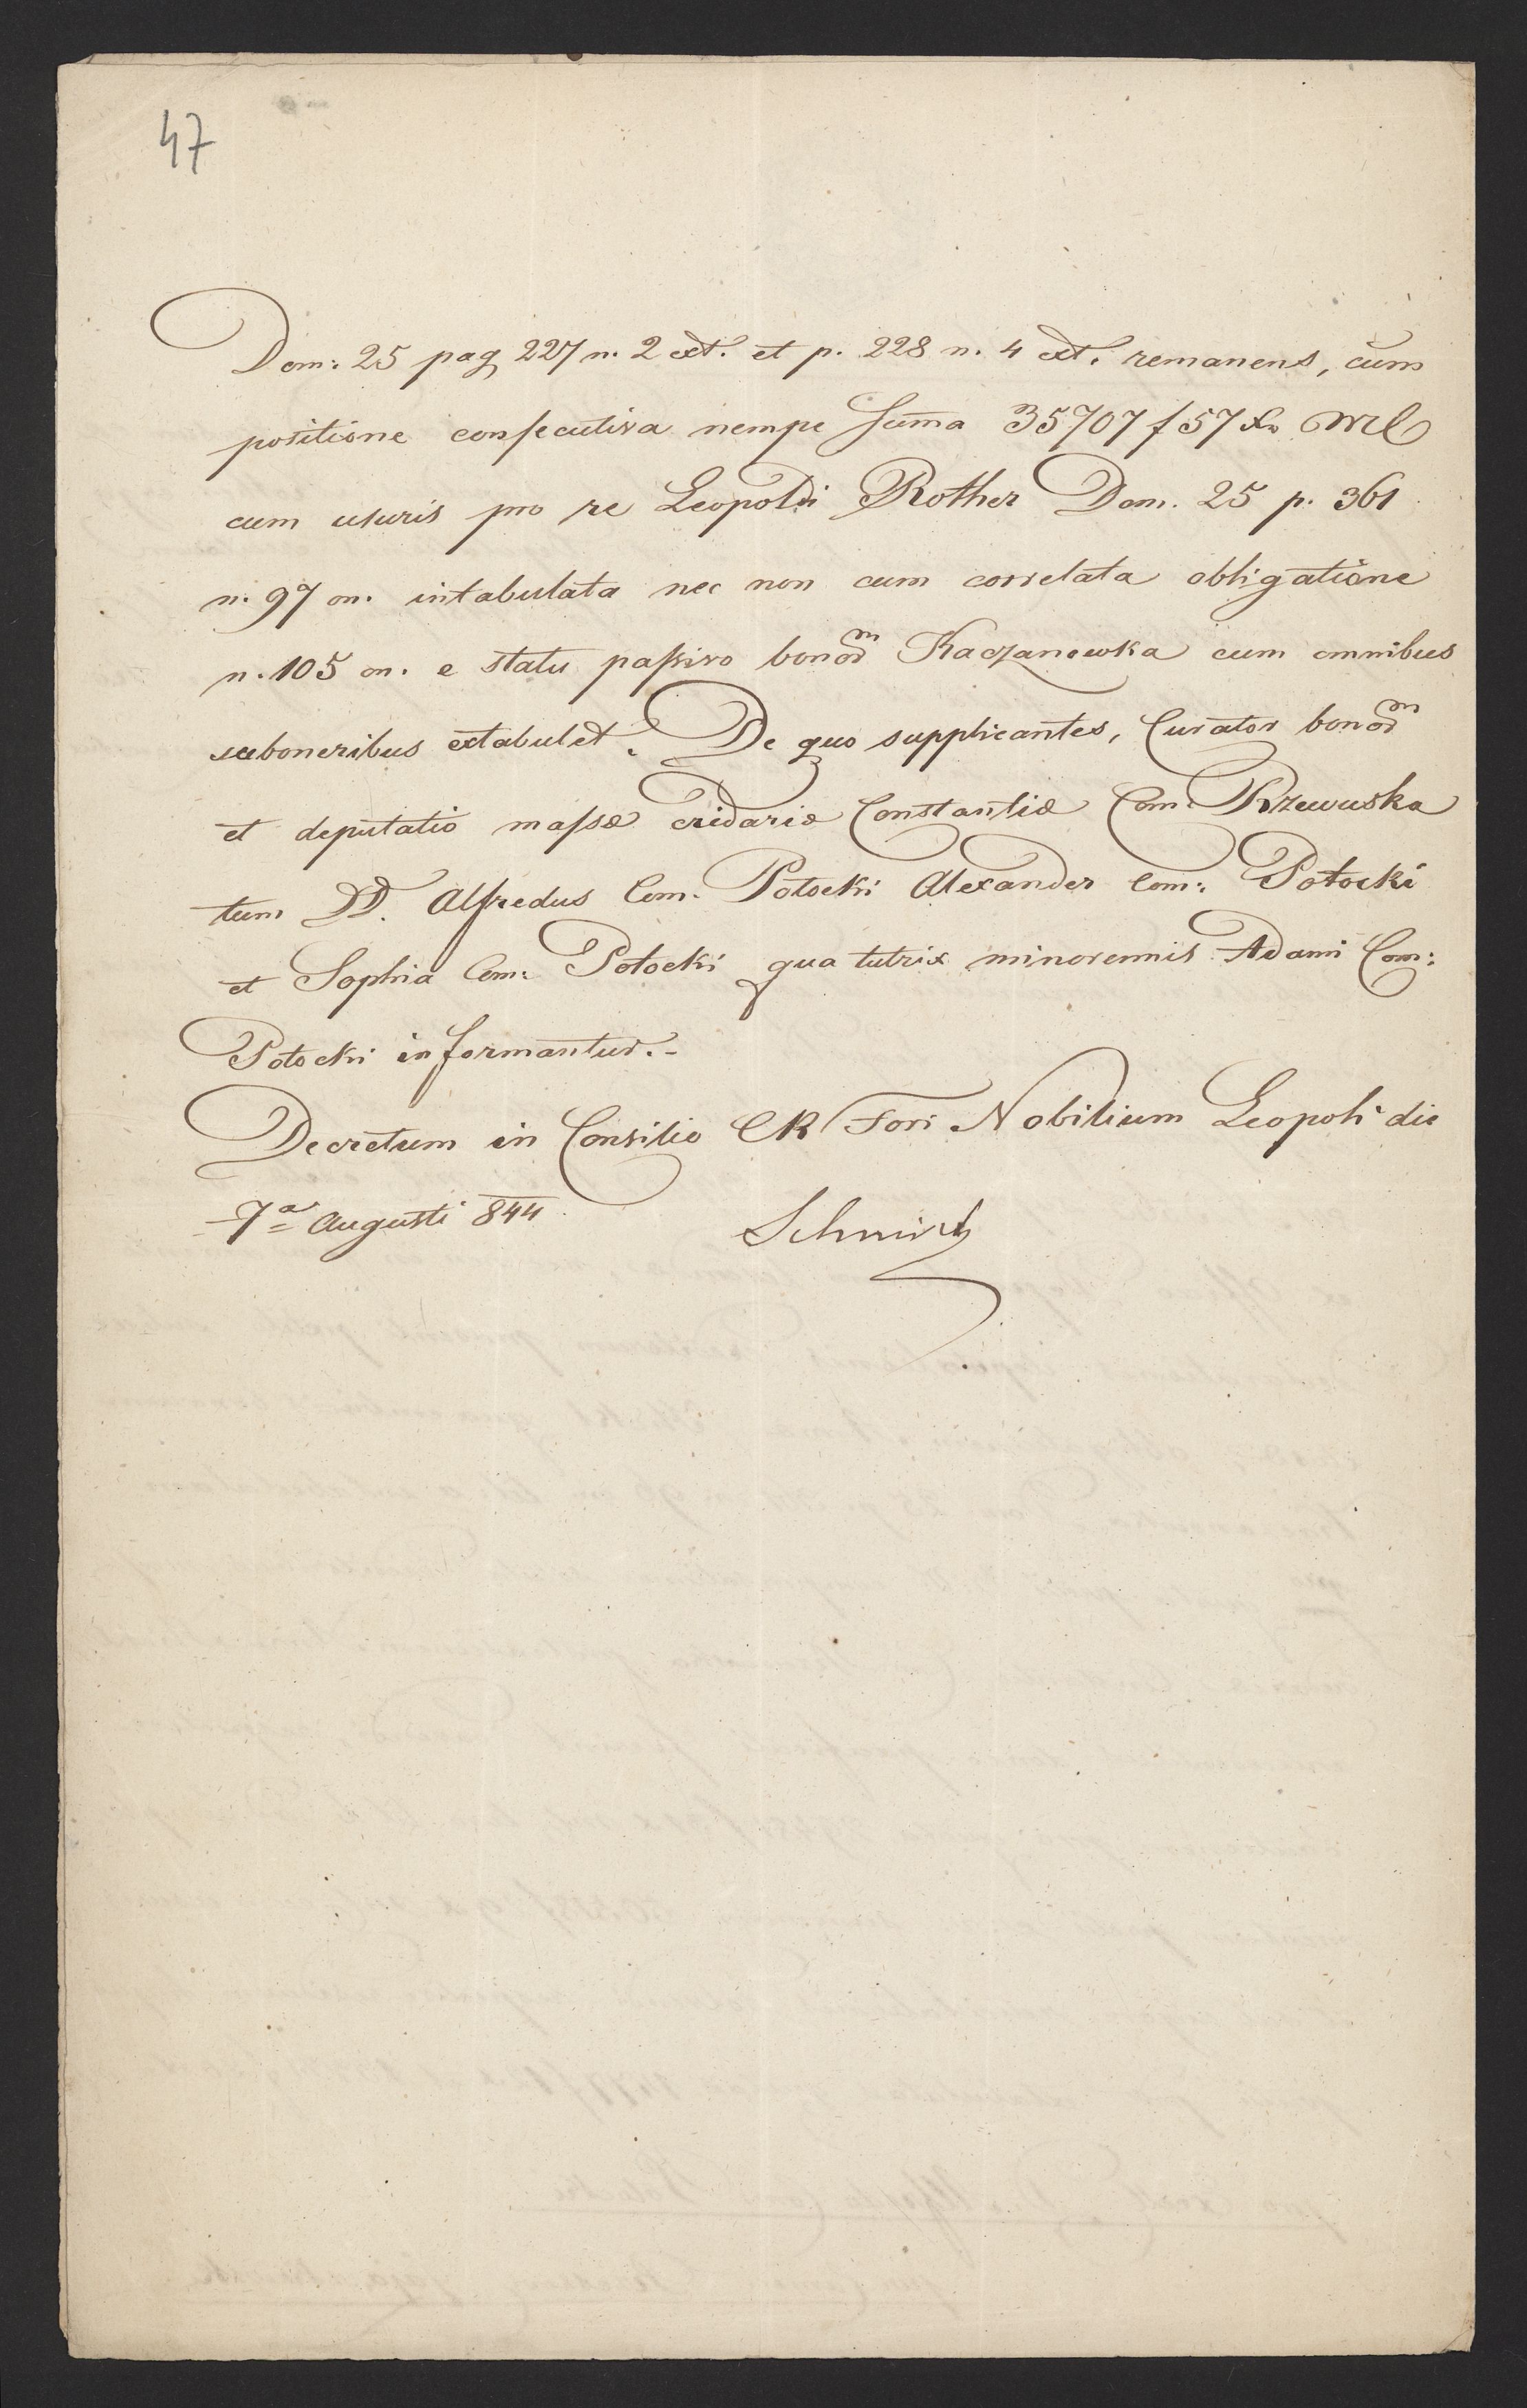 47
Dom: 25 pag 227 n. 2 ext. et p. 228 n. 4 ext. remanens, cum
positione consecutiva nempe Sum̄a 35707 f 57 Xr WW
cum usuris pro re Leopoldi Rother Dom. 25 p. 361
n. 97 on. intabulata nec non cum correlata obligatione
n. 105 on. e statu passivo bonor̄m Kaczanowka cum omnibus
suboneribus extabulet. De quo supplicantes, Curator bonor̄m
et deputatio massæ cridariæ Constantiæ Com. Rzewuska
tum DD. Alfredus Com. Potocki Alexander Com: Potocki
et Sophia Com: Potocki qua tutrix minorennis Adami Com:
Potocki informantur.-
Decretum in Consilio CR Fori Nobilium Leopoli die
7ª Augusti 844